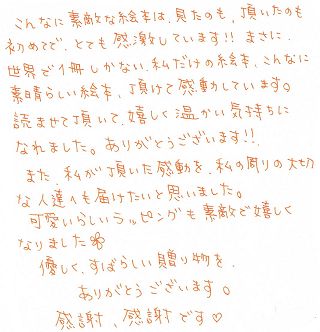 こんなに素敵な絵本は、見たのも、頂いたのも
初めてで、とても感激しています!! まさに、
世界で1冊しかない、私だけの絵本、こんなに
素晴らしい絵本、頂けて感動しています。
読ませて頂いて、嬉しく温かい気持ちに
なれました。ありがとうございます!!
また、私が頂いた感動を、私の周りの大切
な人達へも届けたいと思いました。
可愛いらしいラッピングも素敵で嬉しく
なりました
優しく、すばらしい贈り物を、
ありがとうございます。
感謝、感謝です♡